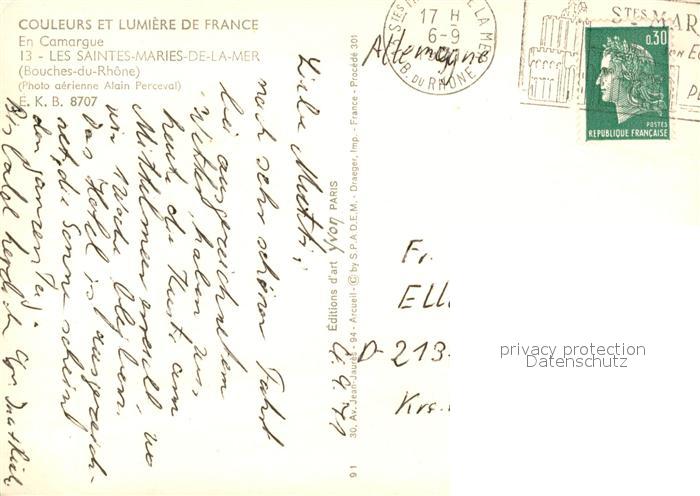 COULEURS ET LUMIÈRE DE FRANCE
En Camargue
13 - LES SAINTES-MARIES-DE-LA-MER
(Bouches-du-Rhône)
(Photo aérienne Alain Perceval)
E. K. B. 8707
Liebe Mutti,
nach sehr schöner Fahrt
bei ausgezeichnetem
Wetter, haben wir
heute die Küste am
Mittelmeer erreicht, wo
wir 1 Woche bleiben.
Das Hotel ist ausgezeich-
net, die Sonne scheint
den ganzen Tag.
Bis bald herzliche
Éditions d'art yvon PARIS
30, Av. Jean-Jaurès - 94 - Arcueil - © by S.P.A.D.E.M. - Draeger, Imp. - France - Procédé 301
91
17 H
6-9
B. DU RHONE
STES MAR
0,30
POSTES
REPUBLIQUE FRANÇAISE
Allemagne
Fr.
D-213
Krs.
privacy protection
Datenschutz